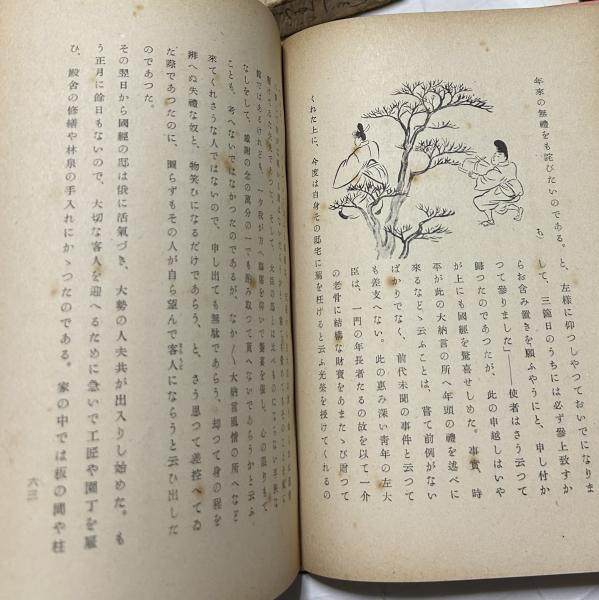 年來の無禮をも詫びたいのである。と、左樣に仰つしやつておいでになりま
して、三箇日のうちには必ず參上致すか
らお含み置きを願ふやうにと、申し付か
つて參りました」――使者はさう云つて
歸つたのであつたが、此の申越しはいや
が上にも國經を驚喜せしめた。事實、時
平が此の大納言の所へ年頭の禮を述べに
來るなどゝ云ふことは、嘗て前例がない
ばかりでなく、前代未聞の事件と云つて
も差支へない。此の惠み深い靑年の左大
臣は、一門の年長者たるの故を以て一介
の老骨に結構な財寶をあまたゝび附つて
くれた上に、今度は自身その邸宅に駕を枉げると云ふ光榮を授けてくれるの
館ではあるけれども、一夕我が方へ臨席を仰いで饗宴を催し、心の限りもて
なしをして、感謝の念の萬分の一でも酌み取つて貰へないであらうかと云ふ
ことも、考へないではなかつたのであるが、なか〳〵大納言風情の所へなど
來てくれさうな人ではないので、申し出ても無駄であらう、却つて身の程を
辨へぬ失禮な奴と、物笑ひになるだけであらう、と、さう思つて差控へてゐ
た際であつたのに、圖らずもその人が自ら望んで客人にならうと云ひ出した
のであつた。
その翌日から國經の邸は俄に活氣づき、大勢の人夫共が出入りし始めた。も
う正月に餘日もないので、大切な客人を迎へるために急いで工匠や園丁を雇
ひ、殿舍の修繕や林泉の手入れにかゝつたのである。家の中では板の間や柱
六三